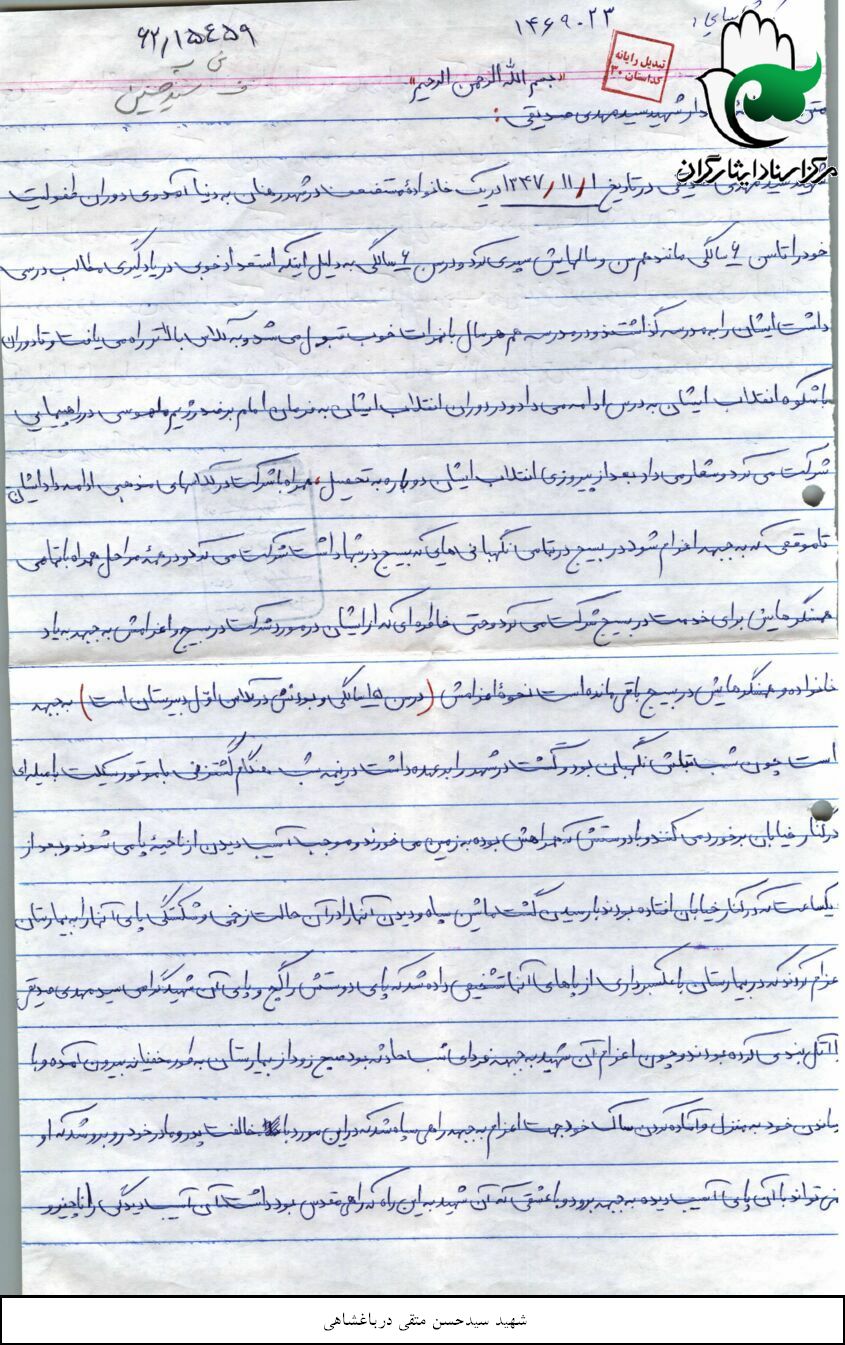 ۱۴۶۹۰۲۳
۶۲/۱۵۴۵۹
تبدیل رایانه
گلستان ۳۰
«بسم الله الرحمن الرحیم»
شهید سید مهدی صدیقی:
مرکز اسناد ایثارگران
شهید سید مهدی صدیقی در تاریخ ۱۳۴۷/۱۱/۱ در یک خانوادهٔ مستضعف در شهر به دنیا آمد وی دوران طفولیت
خود را تا سن ۶ سالگی مانند هم سن و سالهایش سپری کرد و در سن ۶ سالگی به دلیل اینکه استعداد خوبی در یادگیری مطالب درسی
داشت ایشان را به مدرسه گذاشتند و در مدرسه هم هر سال با نمرات خوب قبول می شد و به کلاس بالاتر راه می یافت و تا دوران
باشکوه انقلاب ایشان به درس ادامه می داد و در دوران انقلاب ایشان به فرمان امام بر ضد رژیم در راهپیمایی
شرکت می کرد و شعار می داد بعد از پیروزی انقلاب ایشان دوباره به تحصیل همراه با شرکت در کلاسهای مذهبی ادامه داد ایشان
تا موقعی که به جبهه اعزام شود در بسیج در تمامی نگهبانی هایی که بسیج در شهر داشت شرکت می کرد و در همهٔ مراحل همراه با تمامی
همسنگرهایش برای خدمت در بسیج شرکت می کرد و حتی خاطره ای که از ایشان در مورد شرکت در بسیج و اعزامش به جبهه به یاد
خانواده و همسنگرهایش در بسیج باقی مانده است نحوهٔ اعزامش (در سن ۱۵ سالگی و بودنش در کلاس اول دبیرستان است) به جبهه
است چون شب قبلش نگهبان بود و گشت در شهر را بر عهده داشت در نیمه شب هنگام گشتزنی با موتورسیکلت با میله ای
در کنار خیابان برخورد می کند و با دوستش که همراهش بوده به زمین می خورند و موجب آسیب دیدن از ناحیهٔ پا می شوند و بعد از
یکساعت که در کنار خیابان افتاده بودند با رسیدن گشت ماشین سپاه و دیدن آنها در آن حالت زخمی و شکستگی پای آنها را به بیمارستان
اعزام کردند که در بیمارستان با عکسبرداری از پاهای آنها تشخیص داده شد که پای دوستش را گچ و پای آن شهید گرامی سید مهدی صدیقی
را آتل بندی کرده بودند و چون اعزام آن شهید به جبهه فردای شب حادثه بود صبح زود از بیمارستان به طور مخفیانه بیرون آمده و با
رساندن خود به منزل و آماده کردن ساک خود جهت اعزام به جبهه راهی سپاه شد که در این مورد با مخالفت پدر و مادر خود روبرو شد که او
نمی تواند با آن پای آسیب دیده به جبهه برود و با عشقی که آن شهید به این راه که راهی مقدس بود داشت آن آسیب دیدگی را ناچیز
شهید سیدحسن متقی درباغشاهی